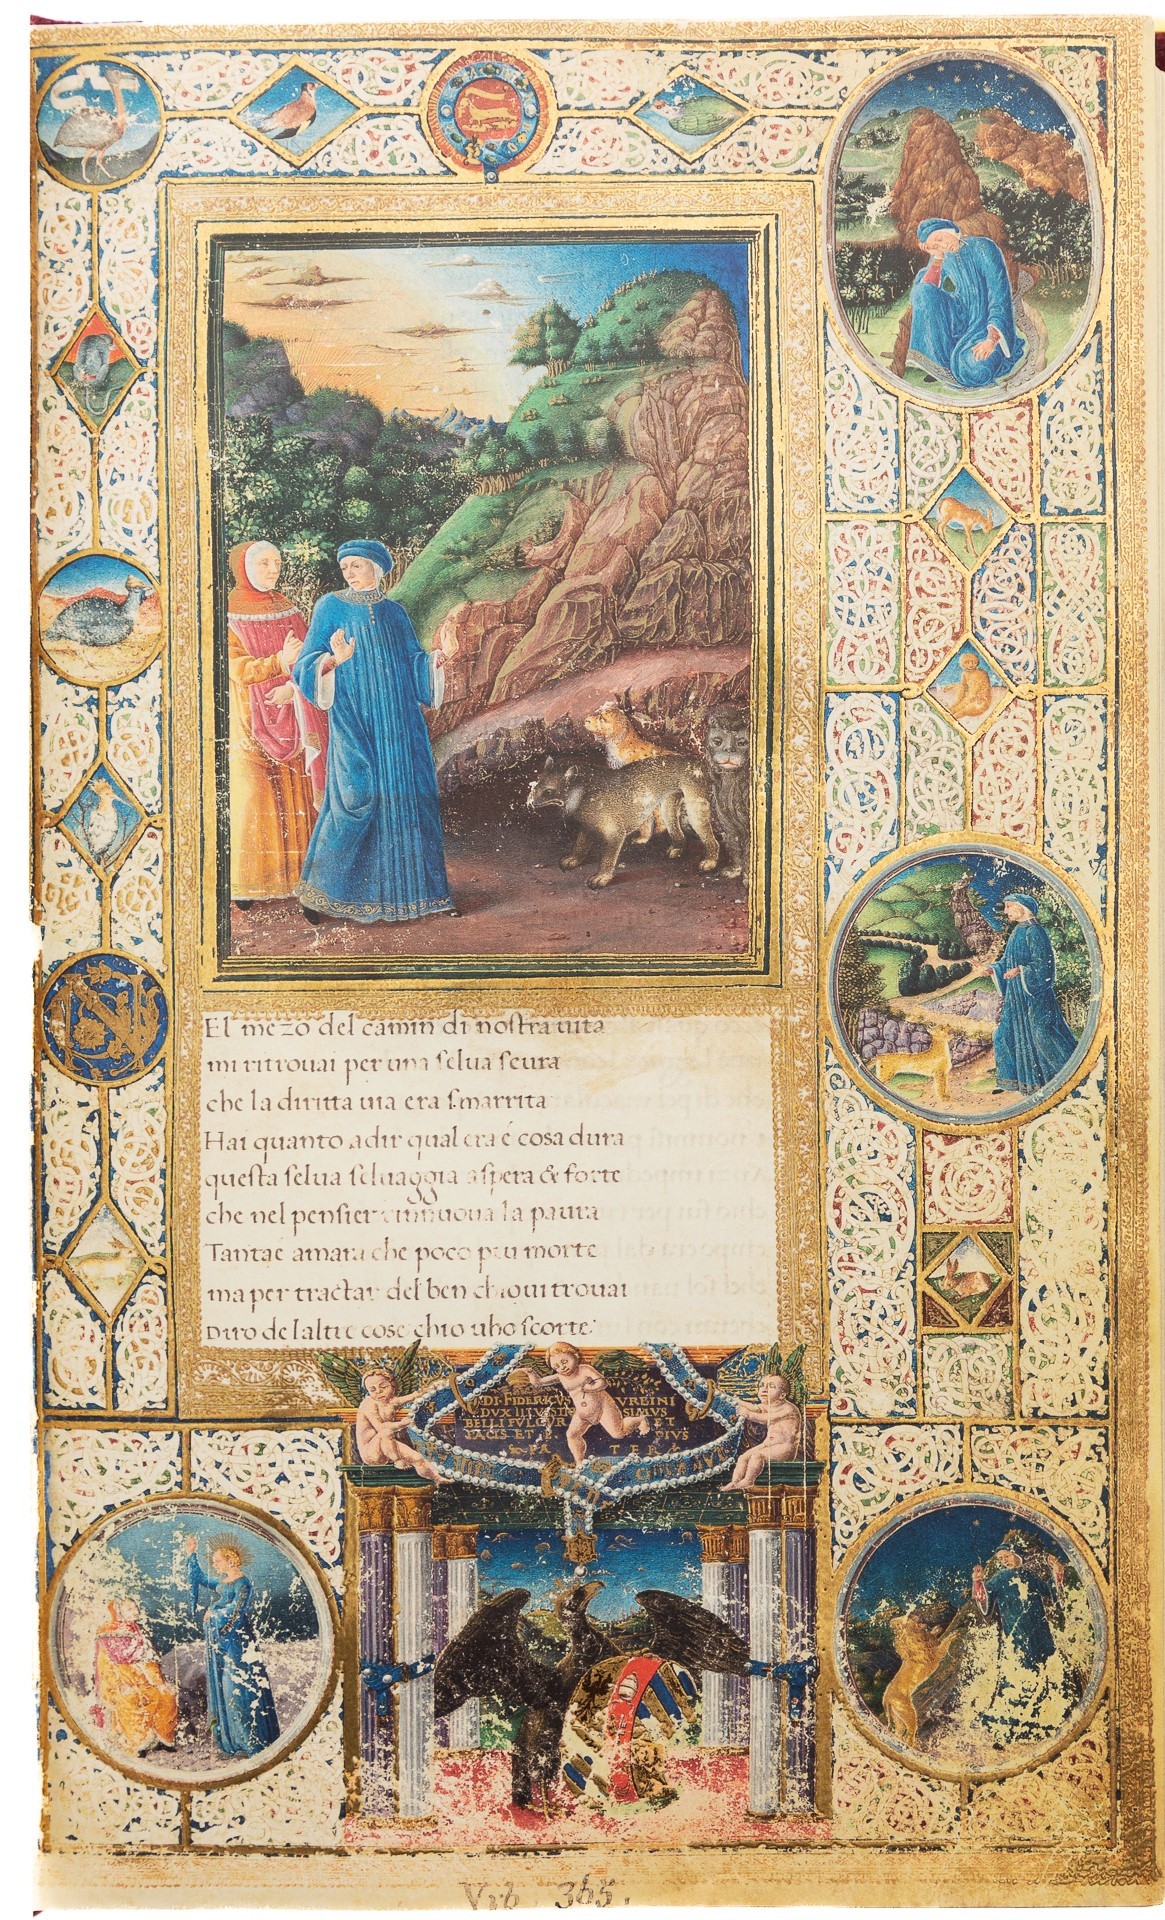 El mezo del camin di nostra uita
mi ritrouai per una selua scura
che la diritta uia era smarrita
Hai quanto adir qual era é cosa dura
questa selua seluaggia aspera & forte
che nel pensier rinnoua la paura
Tantaé amara che poco piu morte
ma per tractar del ben chioui trouai
Diro de laltre cose chio uho scorte
DI·FIDERICVS VRBINI
DVX ILLVSTRIS SIMVS
BELLI FVLGVR ET
PACIS ET P. PIVS
PA TER
Vrb. 365.